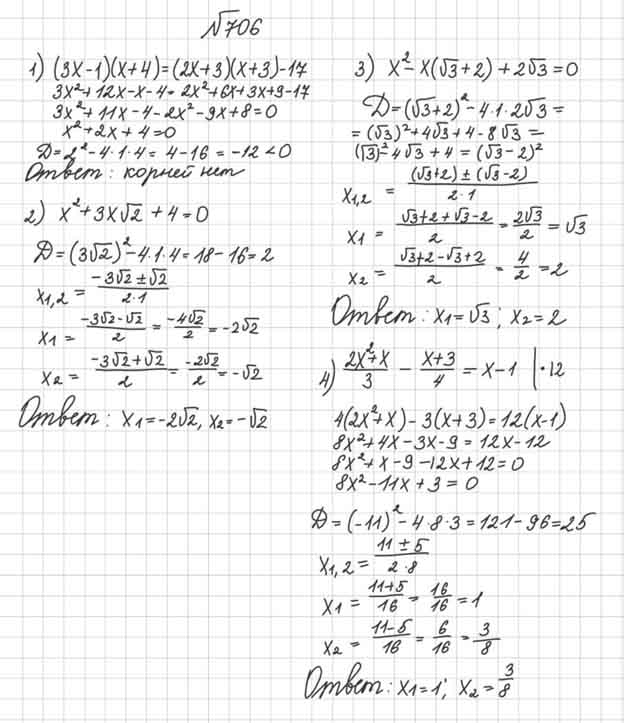 №706
1) (3x-1)(x+4)=(2x+3)(x+3)-17
3x²+12x-x-4=2x²+6x+3x+9-17
3x²+11x-4-2x²-9x+8=0
x²+2x+4=0
D=2²-4·1·4=4-16=-12<0
Ответ: корней нет
2) x²+3x√2+4=0
D=(3√2)²-4·1·4=18-16=2
x1,2 = (-3√2±√2)/(2·1)
x1 = (-3√2-√2)/2 = (-4√2)/2 = -2√2
x2 = (-3√2+√2)/2 = (-2√2)/2 = -√2
Ответ: x1=-2√2, x2=-√2
3) x²-x(√3+2)+2√3=0
D=(√3+2)²-4·1·2√3=
=(√3)²+4√3+4-8√3=
(√3)²-4√3+4=(√3-2)²
x1,2 = ((√3+2)±(√3-2))/(2·1)
x1 = (√3+2+√3-2)/2 = 2√3/2 = √3
x2 = (√3+2-√3+2)/2 = 4/2 = 2
Ответ: x1=√3; x2=2
4) (2x²+x)/3 - (x+3)/4 = x-1 |·12
4(2x²+x)-3(x+3)=12(x-1)
8x²+4x-3x-9=12x-12
8x²+x-9-12x+12=0
8x²-11x+3=0
D=(-11)²-4·8·3=121-96=25
x1,2 = (11±5)/(2·8)
x1 = (11+5)/16 = 16/16 = 1
x2 = (11-5)/16 = 6/16 = 3/8
Ответ: x1=1; x2=3/8